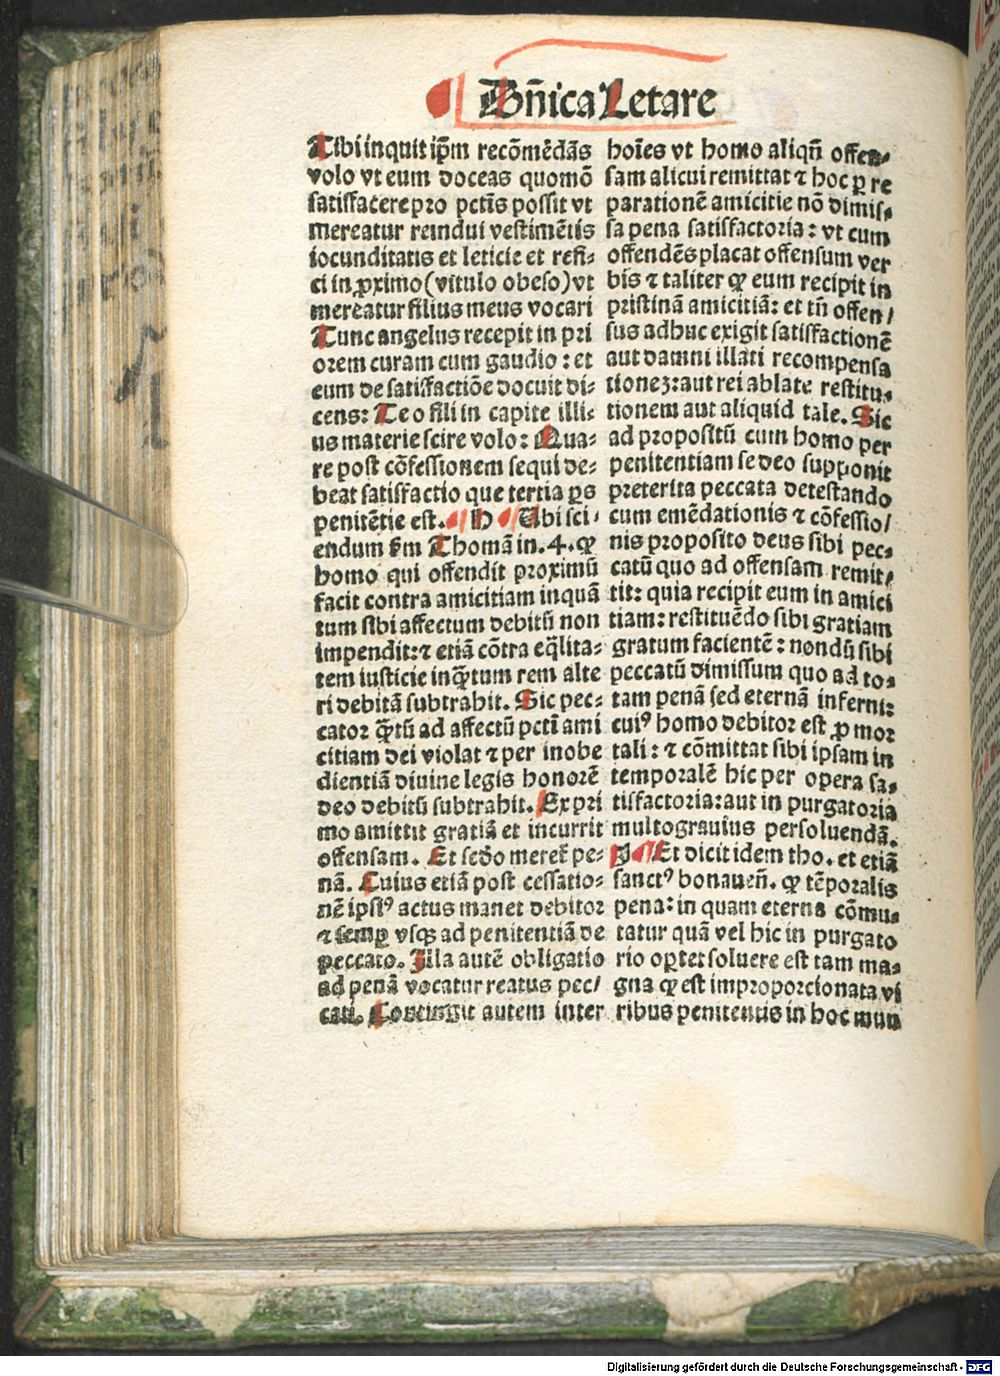 Dñica Letare
Tibi inquit ip̄m recōmēdās
volo vt eum doceas quomō
satisfacere pro pctīs possit vt
mereatur reindui vestimētis
iocunditatis et leticie et refi-
ci in ꝓximo (vitulo obeso) vt
mereatur filius meus vocari
Tunc angelus recepit in pri
orem curam cum gaudio: et
eum de satisfactiōe docuit di-
cens: Te o fili in capite illi-
us materie scire volo: Qua-
re post cōfessionem sequi de-
beat satisfactio que tertia ps
penitētie est. H Ubi sci-
endum ẜm Thomā in .4. ꝙ
homo qui offendit proximū
facit contra amicitiam inquā
tum sibi affectum debitū non
impendit: ⁊ etiā cōtra eq̄lita-
tem iusticie inq̄tum rem alte
ri debitā subtrahit. Sic pec-
cator q̄tū ad affectū pctī ami
citiam dei violat ⁊ per inobe
dientiā diuine legis honorē
deo debitū subtrahit. Ex pri
mo amittit gratiā et incurrit
offensam. Et secd̄o meret̄ pe-
nā. Cuius etiā post cessatio-
nē ipsiꝰ actus manet debitor
⁊ semꝑ vsqꝫ ad penitentiā de
peccato. Illa autē obligatio
ad penā vocatur reatus pec/
cati. Contingit autem inter
hoīes vt homo aliqn̄ offen-
sam alicui remittat ⁊ hoc ꝑ re
parationē amicitie nō dimis-
sa pena satisfactoria: vt cum
offendēs placat offensum ver
bis ⁊ taliter ꝙ eum recipit in
pristinā amicitiā: et tn̄ offen/
sus adhuc exigit satisfactionē
aut damni illati recompensa
tionez: aut rei ablate restitu-
tionem aut aliquid tale. Sic
ad propositū cum homo per
penitentiam se deo supponit
preterita peccata detestando
cum emēdationis ⁊ cōfessio/
nis proposito deus sibi pec-
catū quo ad offensam remit/
tit: quia recipit eum in amici
tiam: restituēdo sibi gratiam
gratum facientē: nondū sibi
peccatū dimissum quo ad to-
tam penā sed eternā inferni:
cuiꝰ homo debitor est ꝓ mor
tali: ⁊ cōmittat sibi ipsam in
temporalē hic per opera sa-
tisfactoria: aut in purgatoria
multo grauius persoluendā.
J Et dicit idem tho. et etiā
sanctꝰ bonauen̄. ꝙ tēporalis
pena: in quam eterna cōmu-
tatur quā vel hic in purgato
rio oꝑtet soluere est tam ma-
gna ꝙ est improporcionata vi
ribus penitentis in hoc mun
Digitalisierung gefördert durch die Deutsche Forschungsgemeinschaft - DFG